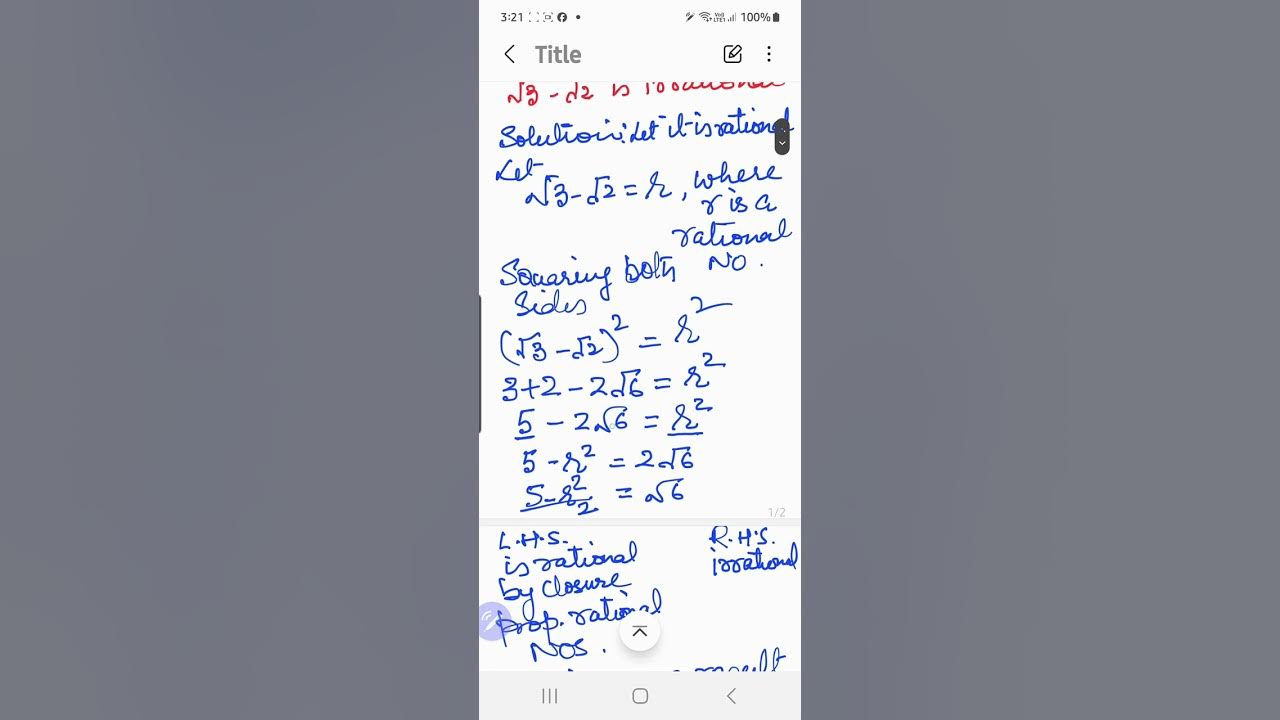 3:21 100%
Title
√3 - √2 is irrational
Solution: Let it is rational
Let √3 - √2 = r, where
r is a
rational
No.
Squaring both
sides
(√3 - √2)² = r²
3 + 2 - 2√6 = r²
5 - 2√6 = r²
5 - r² = 2√6
5 - r²/2 = √6
1/2
L.H.S. R.H.S.
is rational irrational
by closure
prop. rational
NOS.